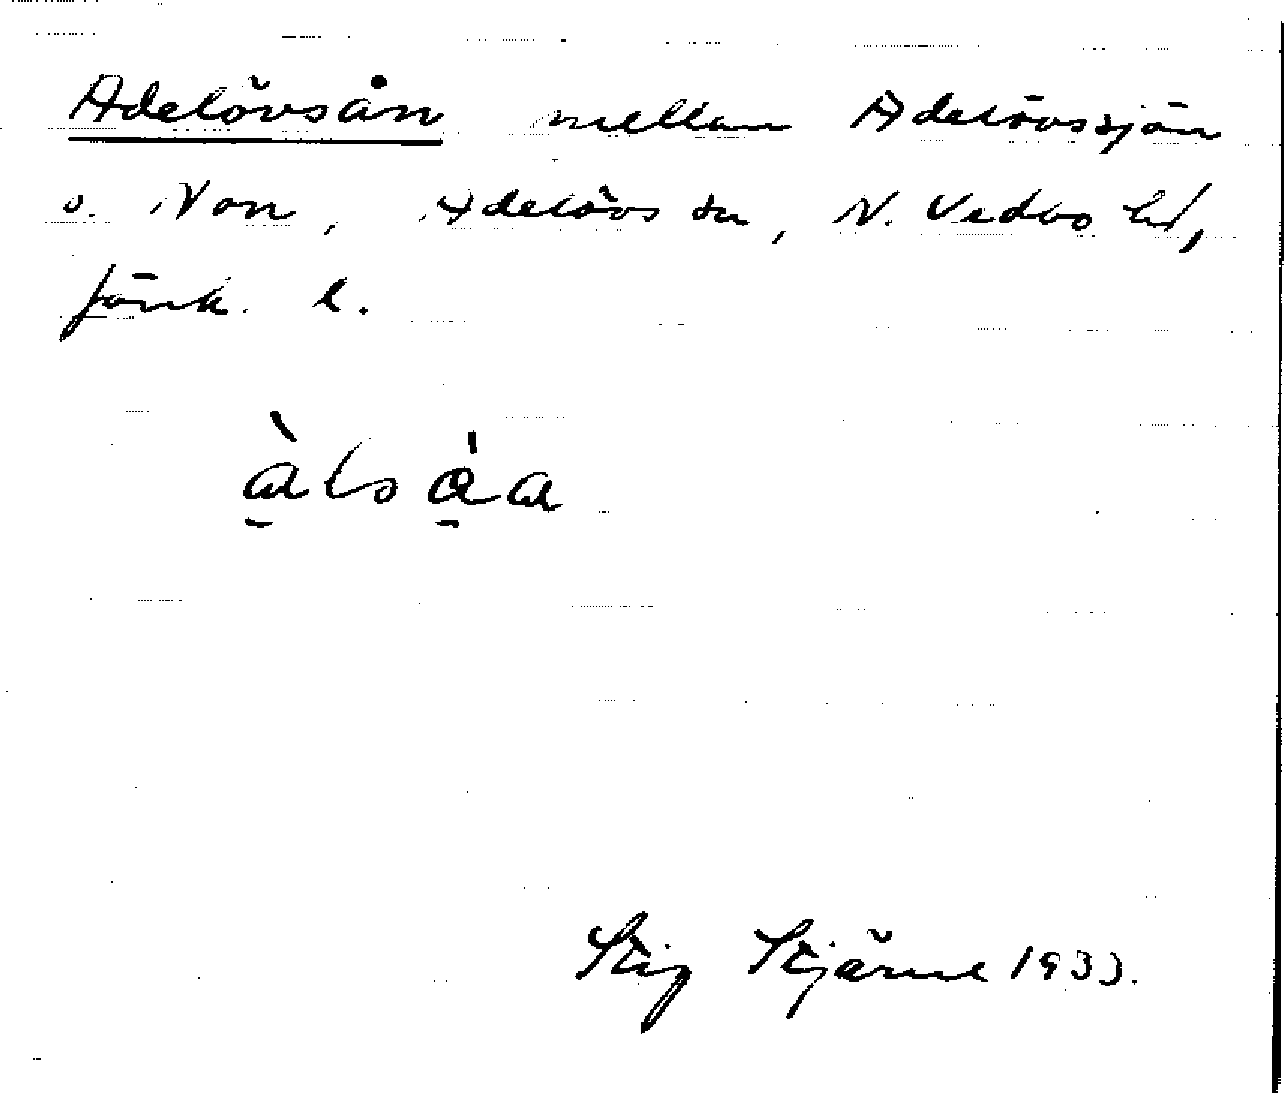 Adelövsån mellan Adelövssjön
o. Non, Adelövs sn, N. Vedbo hd,
Jönk. l.
Stig Stjärne 1933.